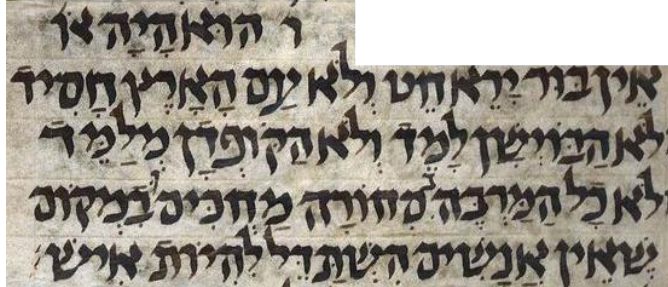 ו הוּא הָיָה או
אֵין בּוּר יְרֵא חֵט וְלֹא עַם הָאָרֶץ חָסִיד
לֹא הַבּוֹיְשָׁן לָמֵד וְלֹא הַקּוֹפְדָן מְלַמֵּד
לֹא כָל הַמַּרְבֶּה בִסְחוֹרָה מַחְכִּים וּבְמָקוֹם
שֶׁאֵין אֲנָשִׁים הִשְׁתַּדֵּל לִהְיוֹת אִישׁ